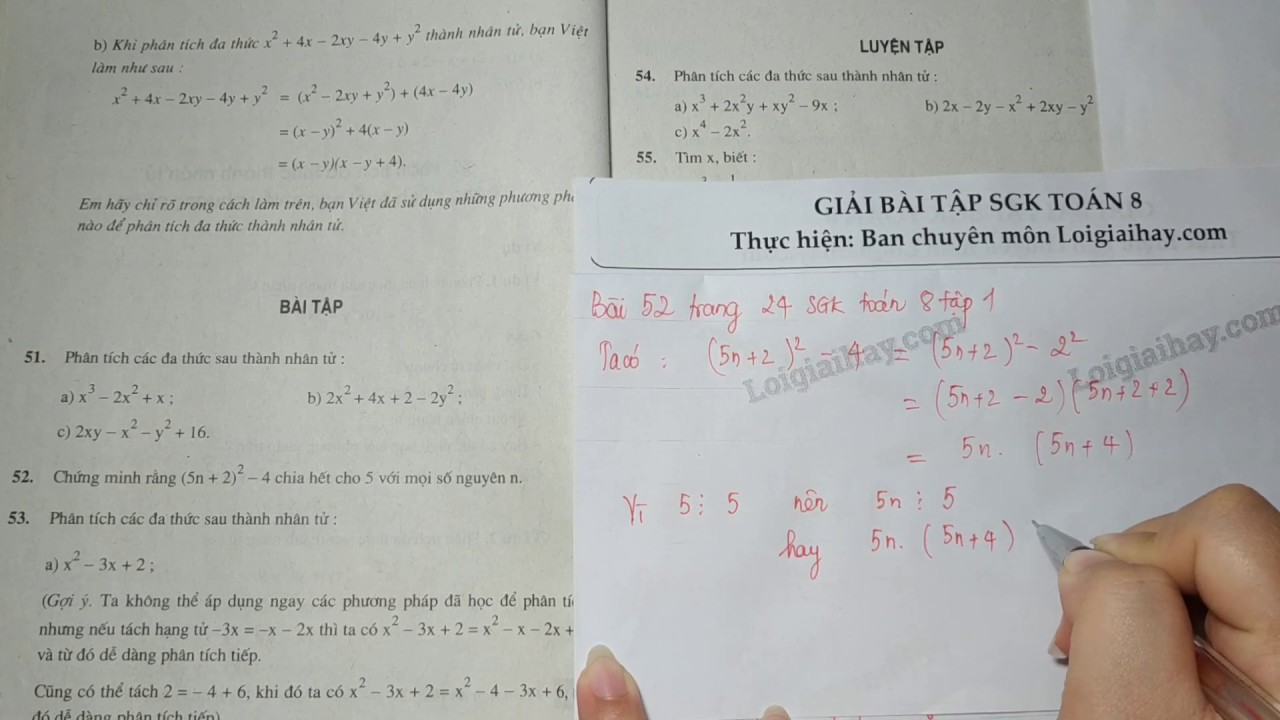 b) Khi phân tích đa thức x² + 4x − 2xy − 4y + y² thành nhân tử, bạn Việt
làm như sau :
x² + 4x − 2xy − 4y + y² = (x² − 2xy + y²) + (4x − 4y)
= (x − y)² + 4(x − y)
= (x − y)(x − y + 4).
Em hãy chỉ rõ trong cách làm trên, bạn Việt đã sử dụng những phương
nào để phân tích đa thức thành nhân tử.
BÀI TẬP
51. Phân tích các đa thức sau thành nhân tử :
a) x³ − 2x² + x ; b) 2x² + 4x + 2 − 2y² ;
c) 2xy − x² − y² + 16.
52. Chứng minh rằng (5n + 2)² − 4 chia hết cho 5 với mọi số nguyên n.
53. Phân tích các đa thức sau thành nhân tử :
a) x² − 3x + 2 ;
(Gợi ý. Ta không thể áp dụng ngay các phương pháp đã học để phân
nhưng nếu tách hạng tử −3x = −x − 2x thì ta có x² − 3x + 2 = x² − x − 2x +
và từ đó dễ dàng phân tích tiếp.
Cũng có thể tách 2 = − 4 + 6, khi đó ta có x² − 3x + 2 = x² − 4 − 3x + 6,
đó dễ dàng phân tích tiếp)
LUYỆN TẬP
54. Phân tích các đa thức sau thành nhân tử :
a) x³ + 2x²y + xy² − 9x ; b) 2x − 2y − x² + 2xy − y²
c) x⁴ − 2x².
55. Tìm x, biết :
GIẢI BÀI TẬP SGK TOÁN 8
Thực hiện: Ban chuyên môn Loigiaihay.com
Bài 52 trang 24 SGK toán 8 tập 1
Ta có : (5n+2)² − 4 = (5n+2)² − 2²
= (5n+2 − 2)(5n+2+2)
= 5n. (5n+4)
Vì 5 ⋮ 5 nên 5n ⋮ 5
hay 5n. (5n+4)
Loigiaihay.com
Loigiaihay.com